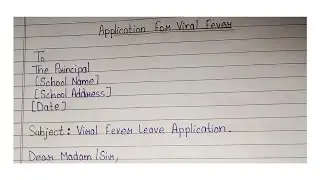 Application For Viral Fever
To
The Principal
[School Name]
[School Address]
[Date]
Subject: Viral Fever Leave Application.
Dear Madam/Sir,